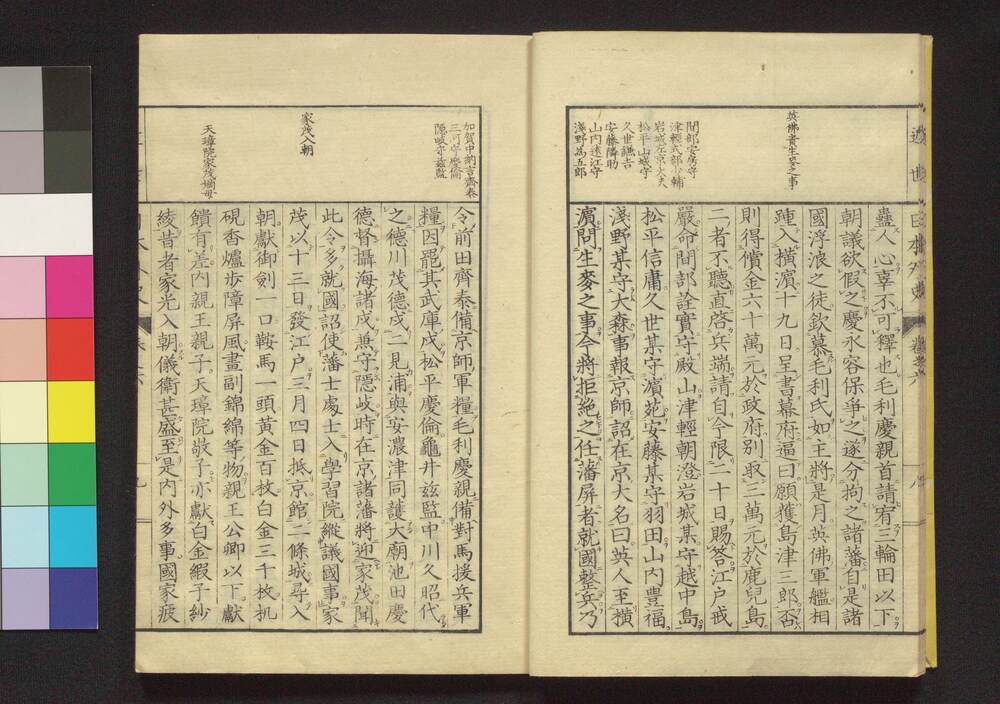 英佛責生麥之事
間部安房守
津輕式部少輔
岩城左京大夫
松平山城守
久世謙吉
安藤隣助
山内遠江守
淺野為五郎
蠱人心辜不可釋也毛利慶親首請宥三輪田以下
朝議欲假之慶永容保爭之遂分拘之諸藩自是諸
國浮浪之徒欽慕毛利氏如主將是月英佛軍艦相
踵入橫濱十九日呈書幕府逼曰願獲島津三郎否
則得償金六十萬元於政府別取三萬元於鹿兒島
二者不聽直啓兵端請自今限二十日賜答江戶戒
嚴命間部詮實守殿山津輕朝澄岩城某守越中島
松平信庸久世某守濱苑安藤某守羽田山內豐福
淺野某守大森事報京師詔在京大名曰英人至橫
濱問生麥之事今將拒絕之任藩屏者就國整兵乃
加賀中納言齊泰
三河守慶倫
隱岐守茲監
家茂入朝
天璋院家茂嫡母
令前田齊泰備京師軍糧毛利慶親備對馬援兵軍
糧因罷其武庫戍松平慶倫龜井茲監中川久昭代
之德川茂德戍二見浦與安濃津同護大廟池田慶
德督攝海諸戍兼守隱岐時在京諸藩將迎家茂聞
此令多就國詔使藩士處士入學習院縱議國事家
茂以十三日發江戶三月四日抵京館二條城尋入
朝獻御劍一口鞍馬一頭黃金百枚白金三千枚机
硯香爐步障屏風畫副錦綿等物親王公卿以下獻
饋有差內親王親子天璋院敬子亦獻白金緞子紗
綾昔者家光入朝儀衛甚盛至是內外多事國家疲